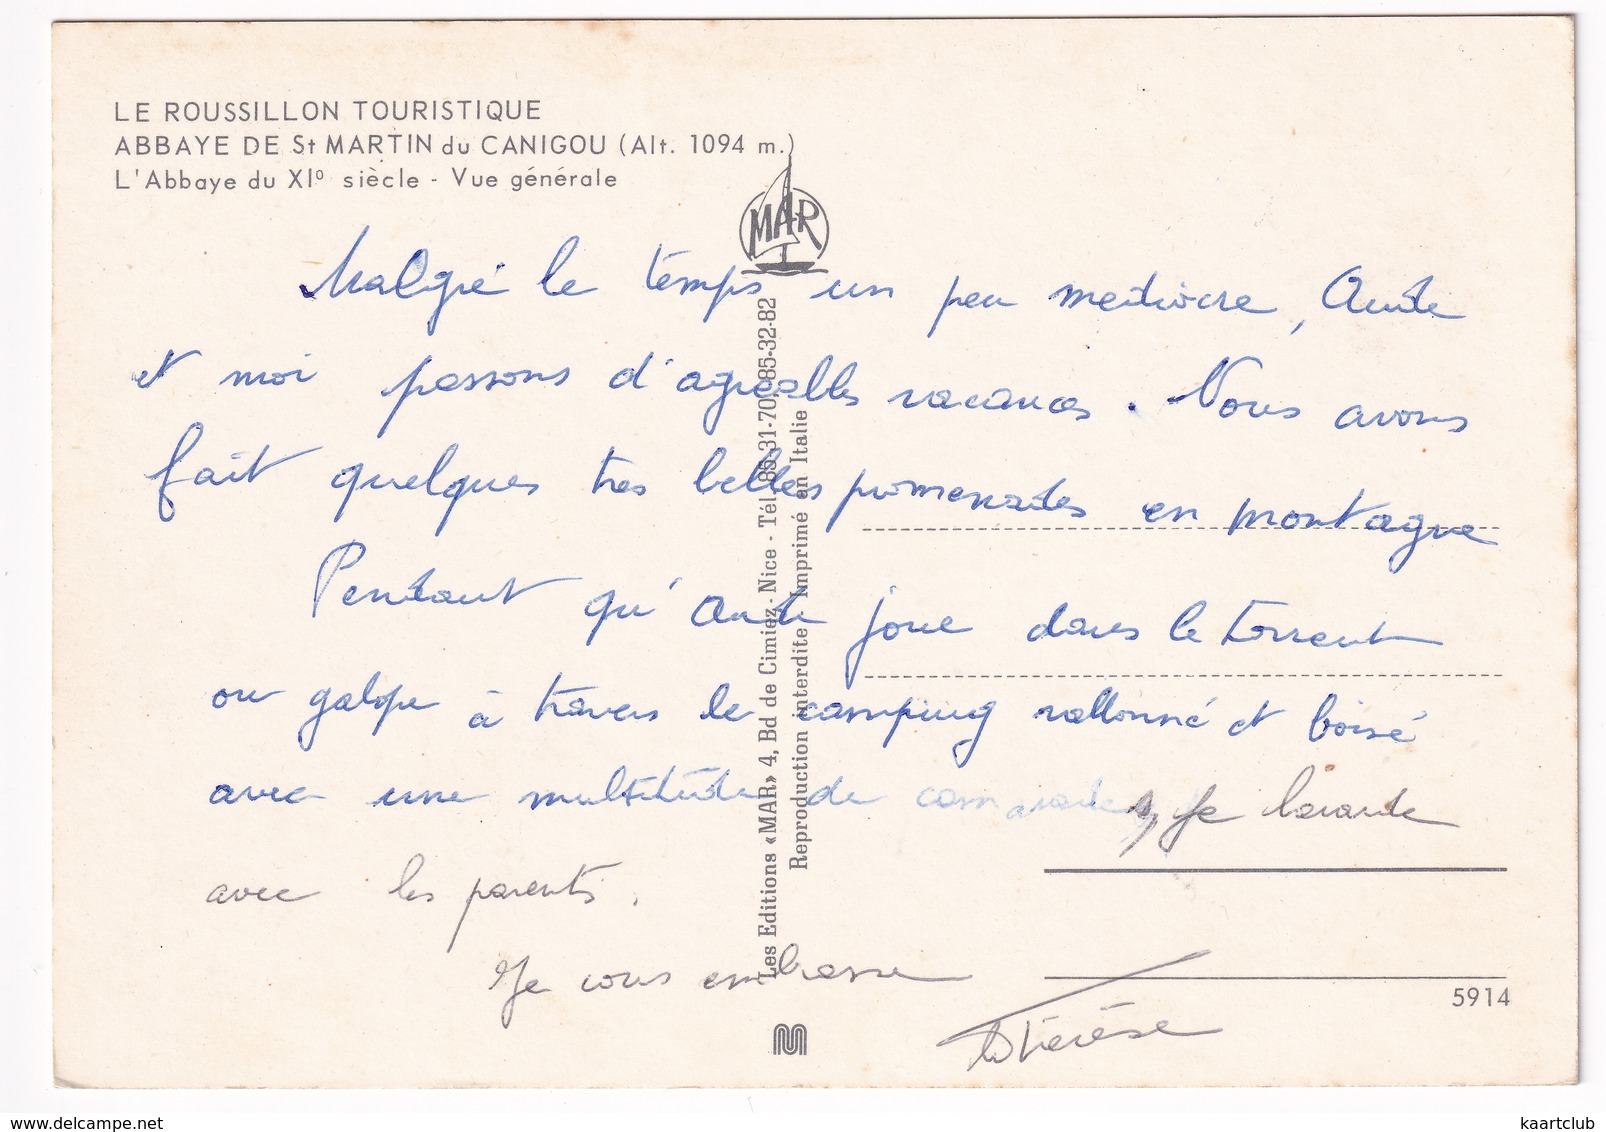 LE ROUSSILLON TOURISTIQUE
ABBAYE DE St MARTIN du CANIGOU (Alt. 1094 m.)
L'Abbaye du XI° siècle - Vue générale
MAR
Malgré le temps un peu mediocre, Aude
et moi passons d'agreables vacances. Nous avons
fait quelques tres belles promenades en montagne
Pendant qu'Aude joue dans le torrent
ou galope à travers le camping vallonné et boisé
avec une multitude de camarades, Je bavarde
avec les parents.
Je vous embrasse
Thérèse
Les Editions «MAR» 4, Bd de Cimiez - Nice - Tél. 85-31-70/85-32-82
Reproduction interdite - Imprimé en Italie
5914
www.delcampe.net
kaartclub